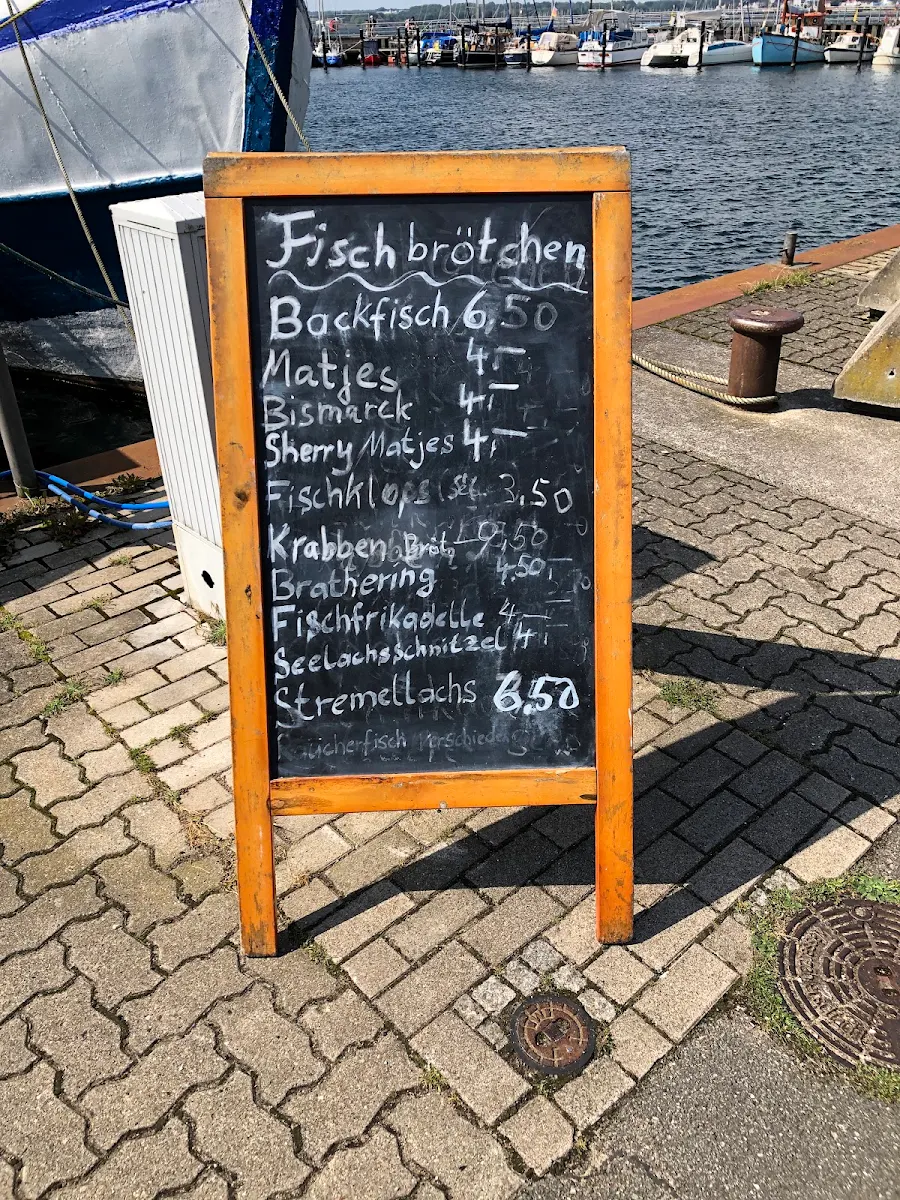 Fischbrötchen
Backfisch 6,50
Matjes 4,-
Bismarck 4,-
Sherry Matjes 4,-
Fischklops 3,50
Krabben Bröt
Brathering 4,50
Fischfrikadelle 4,-
Seelachsschnitzel 4,-
Stremellachs 6,50